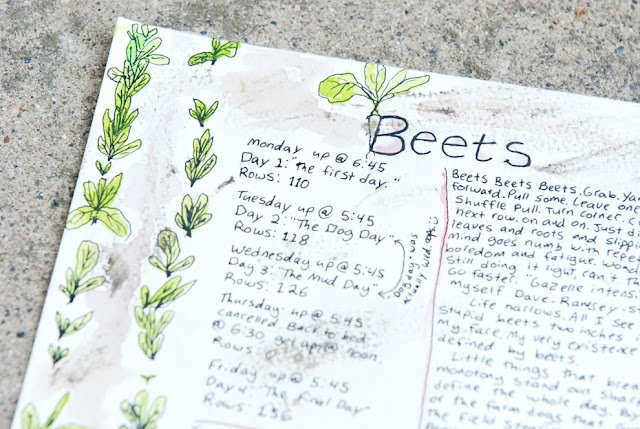 Beets
monday up @ 6:45
Day 1: "The first day."
Rows: 110
Tuesday up @ 5:45
Day 2: "The Dog Day"
Rows: 118
Wednesday up @ 5:45
Day 3: "The Mud Day"
Rows: 126
Thursday: up @ 5:45
cancelled. Back to bed
@ 6:30 get up @ noon.
Rows: 0
Friday up @ 5:45
Day 4: "The final Day"
Rows: 136
Dog day was
actually wed. oops
Beets Beets Beets. Grab.
forward. Pull some. Leave one
Shuffle. Pull. Turn corner.
next row. On and on. Just
leaves and roots and
mind goes numb with
boredom and fatigue.
Still doing it right, can't
Go faster... Gazelle
myself Dave-Ramsey-
Life narrows. All I see
stupid beets two inches
my face. My very existence
defined by beets.
Little things that
monotony stand out
define the whole day. By
of the farm dogs that
the field